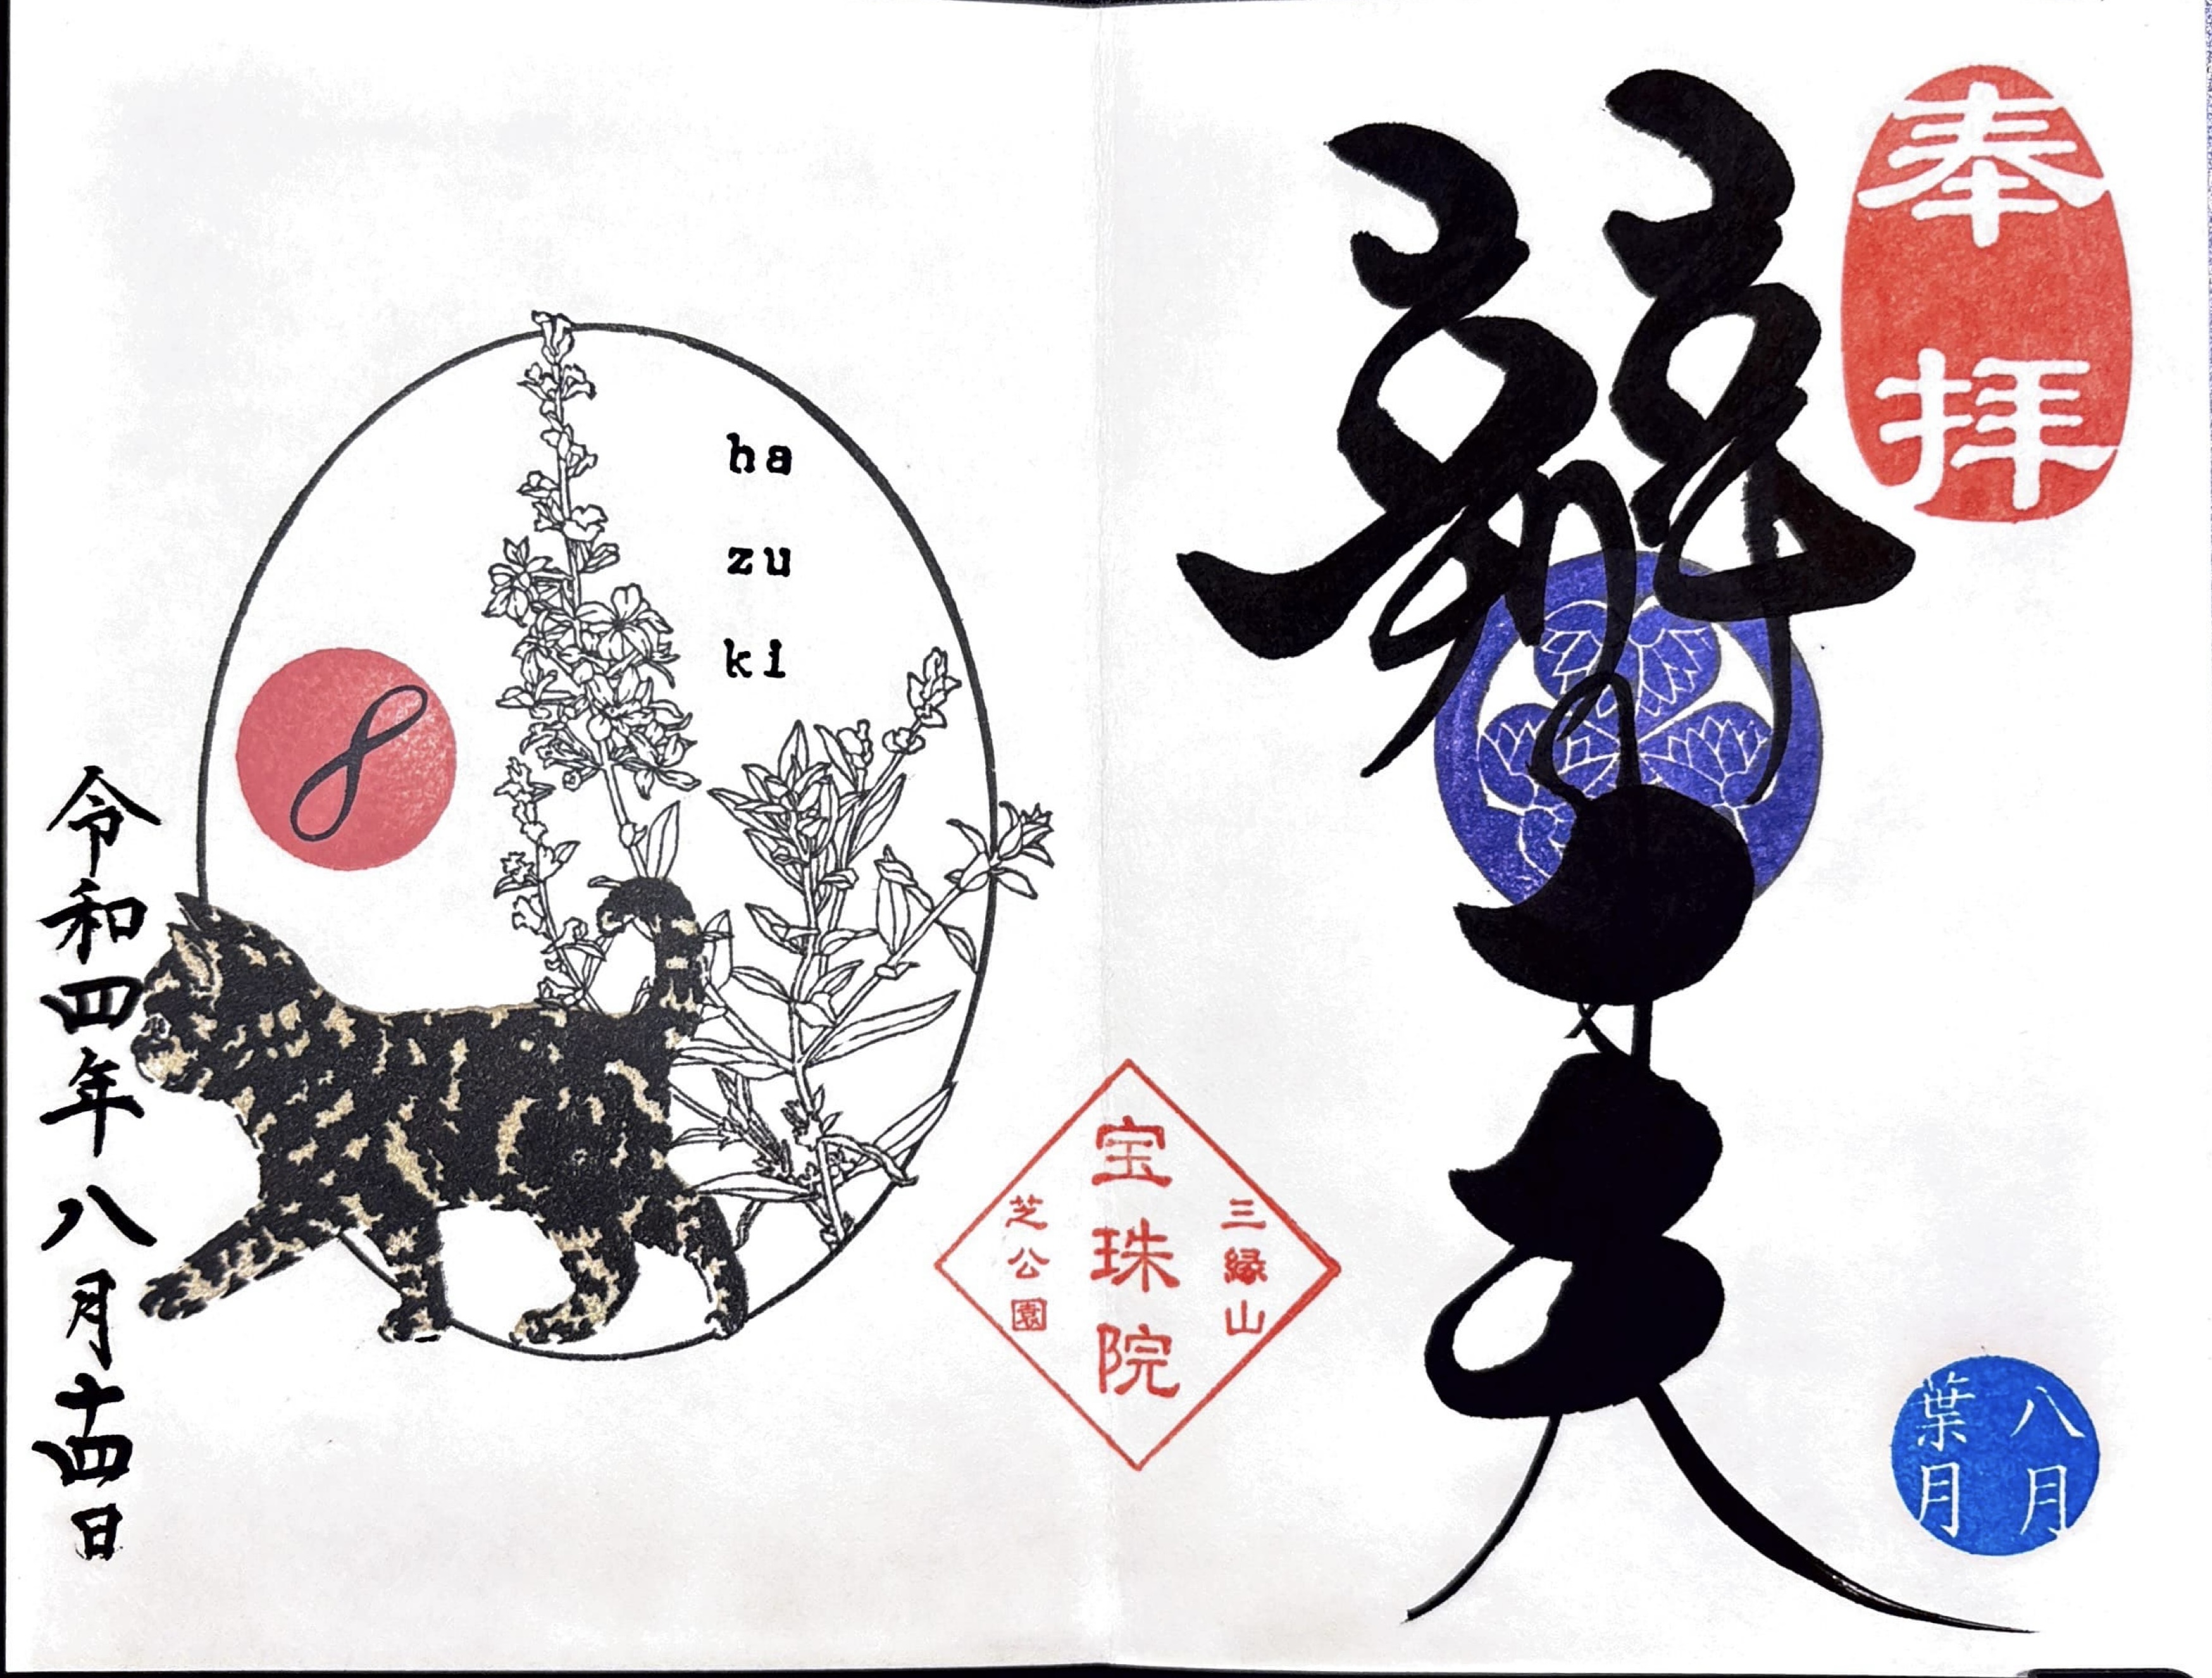 奉拝
辨才天
八月
葉月
三縁山
宝珠院
芝公園
ha
zu
ki
8
令和四年八月十四日